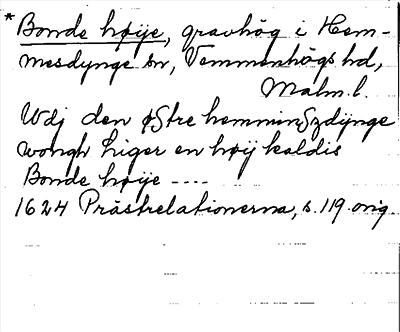 * Bonde høije, gravhög i Hem-
mesdynge sn, Vemmenhögs hd,
Malm.l.
Udj den øStre hemminSzdijnge
wongh liger en høij kaldis
Bonde høije ----
1624 Prästrelationerna, s. 119 orig.